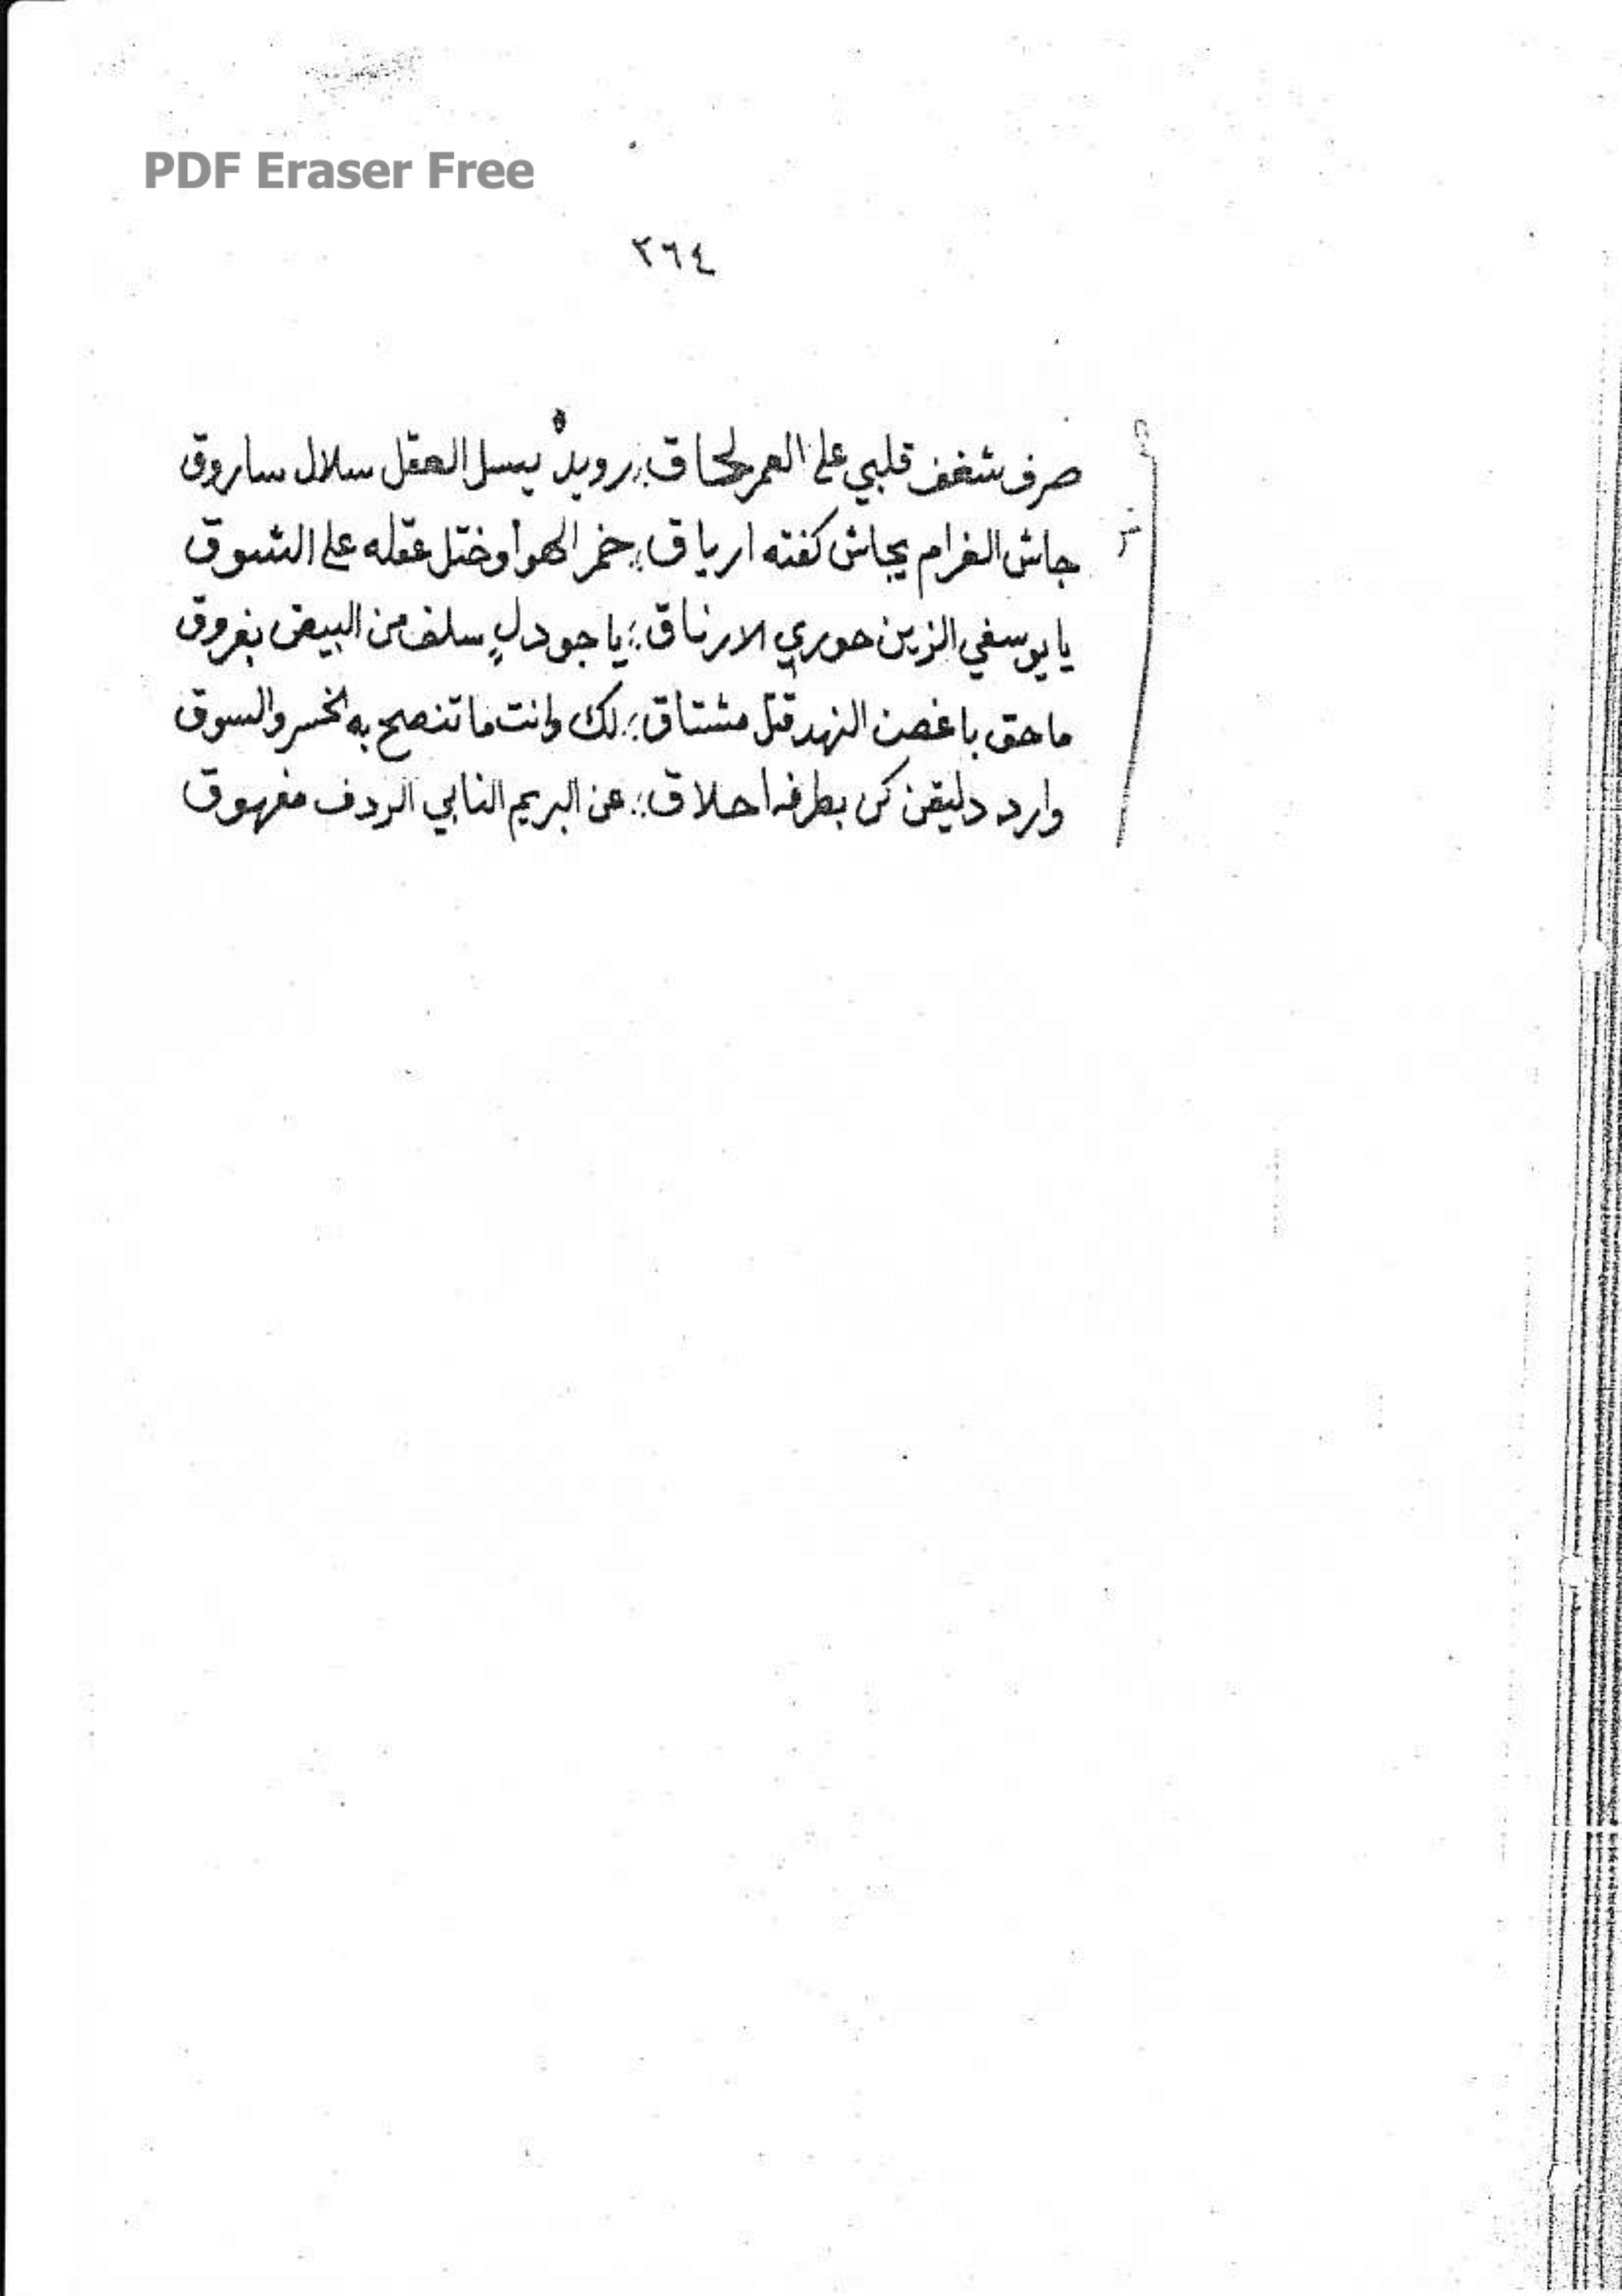 PDF Eraser Free
٣٦٤
صرف شغف قلبي على العمر لحاق ؛ رويد يسل العقل سلال ساروق
جاش الغرام بجاش كفته ارياق ؛ خمر الهوا وختل عقله على الشوق
يا يوسفي الزين حوري الارناق ؛ يا جودلٍ سلف من البيض بغروق
ما حق با غصن النهد قتل مشتاق ؛ لك وانت ما تنصح به الخسر والسوق
وارد دليقن كن بطرفه احلاق ؛ عن البريم النابي الردف مفهوق